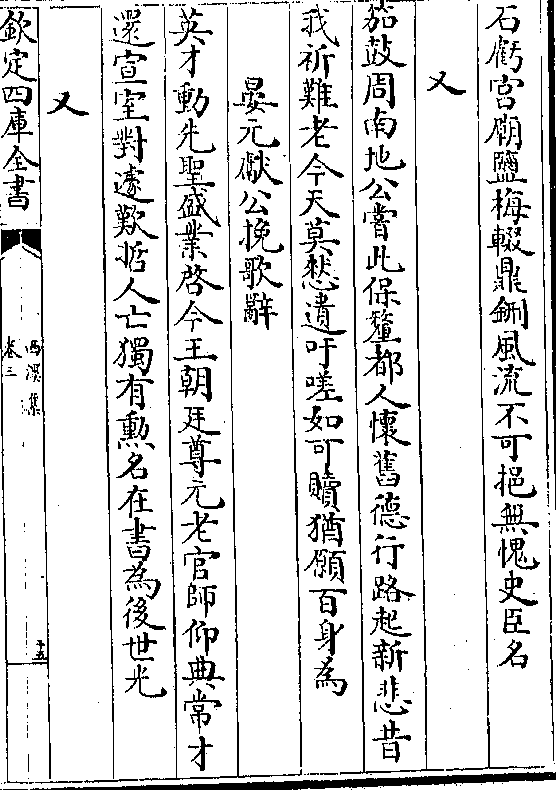 石虧宫廟鹽梅輟鼎鉶風流不可挹無愧史臣名
又
笳鼓周南地公嘗此保釐都人懷舊德行路起新悲昔
我祈難老今天莫憖遺吁嗟如可贖猶願百身為
晏元獻公挽歌辭
英才動先聖盛業啓今王朝廷尊元老官師仰典常才
還宣室對遽歎哲人亡獨有勲名在書為後世光
又
欽定四庫全書
西溪集
卷三
十五